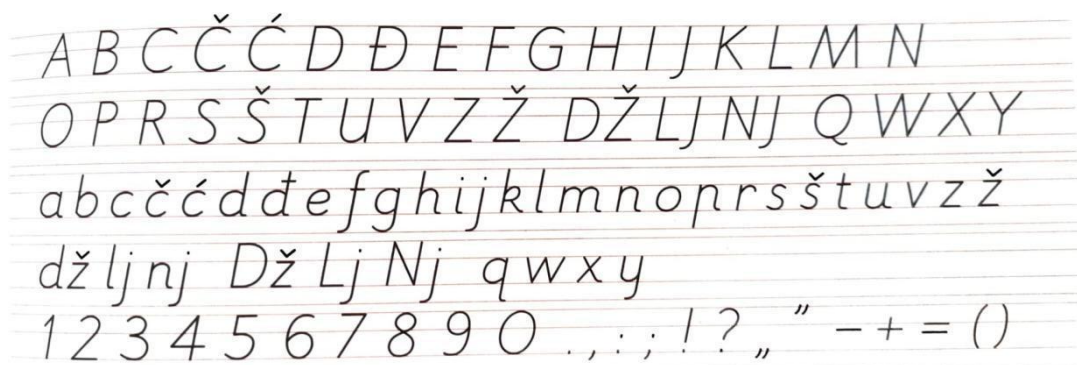 A B C Č Ć D Đ E F G H I J K L M N
O P R S Š T U V Z Ž DŽ LJ NJ Q W X Y
a b c č ć d đ e f g h i j k l m n o p r s š t u v z ž
dž lj nj Dž Lj Nj q w x y
1 2 3 4 5 6 7 8 9 0 . , : ; ! ? „ ” – + = ( )